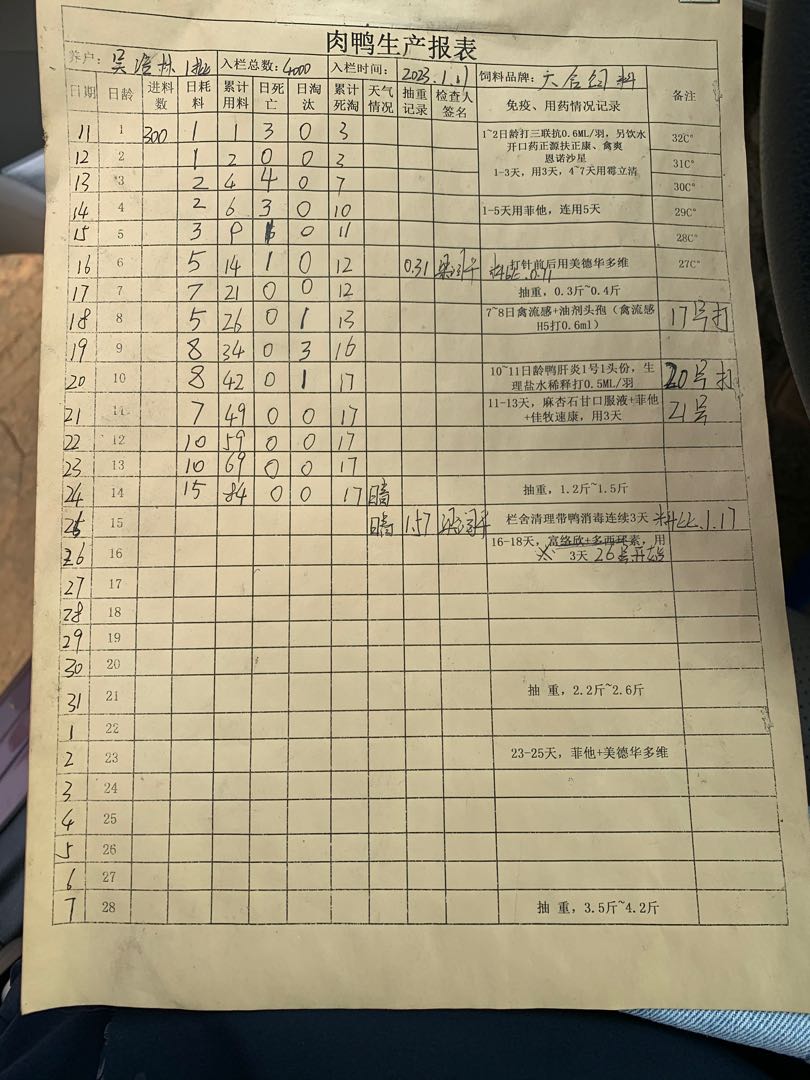 肉鸭生产报表
养户: 吴 林 1批 入栏总数: 4000 入栏时间: 2023.1.11 饲料品牌: 大合饲料
日期 日龄 进料数 日耗料 累计用料 日死亡 日淘汰 累计死淘 天气情况 抽重记录 检查人签名 免疫、用药情况记录 备注
11 1 300 1 1 3 0 3 1~2日龄打三联抗0.6ML/羽,另饮水 32C°
开口药正源扶正康、禽爽
12 2 1 2 0 0 3 恩诺沙星 31C°
13 3 2 4 4 0 7 1-3天,用3天,4~7天用霉立清 30C°
14 4 2 6 3 0 10 1-5天用菲他,连用5天 29C°
15 5 3 9 1 0 11 28C°
16 6 5 14 1 0 12 0.31 打针前后用美德华多维 27C°
料比 0.71
17 7 7 21 0 0 12 抽重,0.3斤~0.4斤
18 8 5 26 0 1 13 7~8日禽流感+油剂头孢(禽流感 17号打
H5打0.6ml)
19 9 8 34 0 3 16
20 10 8 42 0 1 17 10~11日龄鸭肝炎1号1头份,生 20号打
理盐水稀释打0.5ML/羽
21 11 7 49 0 0 17 11-13天,麻杏石甘口服液+菲他 21号
+佳牧速康,用3天
22 12 10 59 0 0 17
23 13 10 69 0 0 17
24 14 15 84 0 0 17 晴 抽重,1.2斤~1.5斤
25 15 晴 1.57 栏舍清理带鸭消毒连续3天 料比.1.17
26 16 16-18天,富络欣+多西环素,用
3天 26号开始
27 17
28 18
29 19
30 20
31 21 抽 重,2.2斤~2.6斤
1 22
2 23 23-25天,菲他+美德华多维
3 24
4 25
5 26
6 27
7 28 抽 重,3.5斤~4.2斤